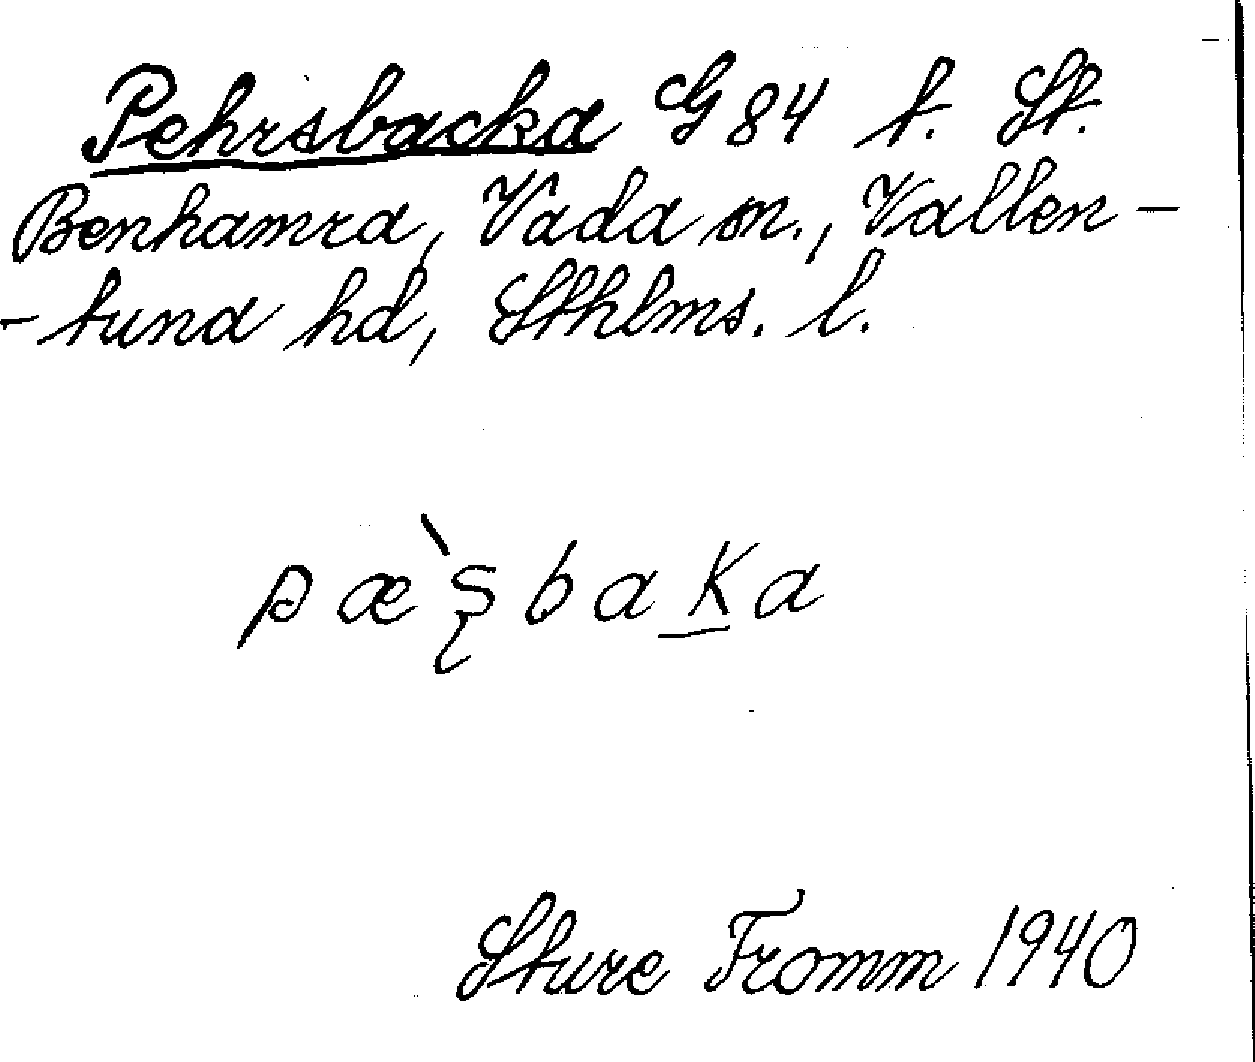 Pehrsbacka G 84 t. St.
Benhamra, Vada sn., Vallen-
-tuna hd, Sthlms. l.
pæ̀ʂbaḵa
Sture Fromm 1940